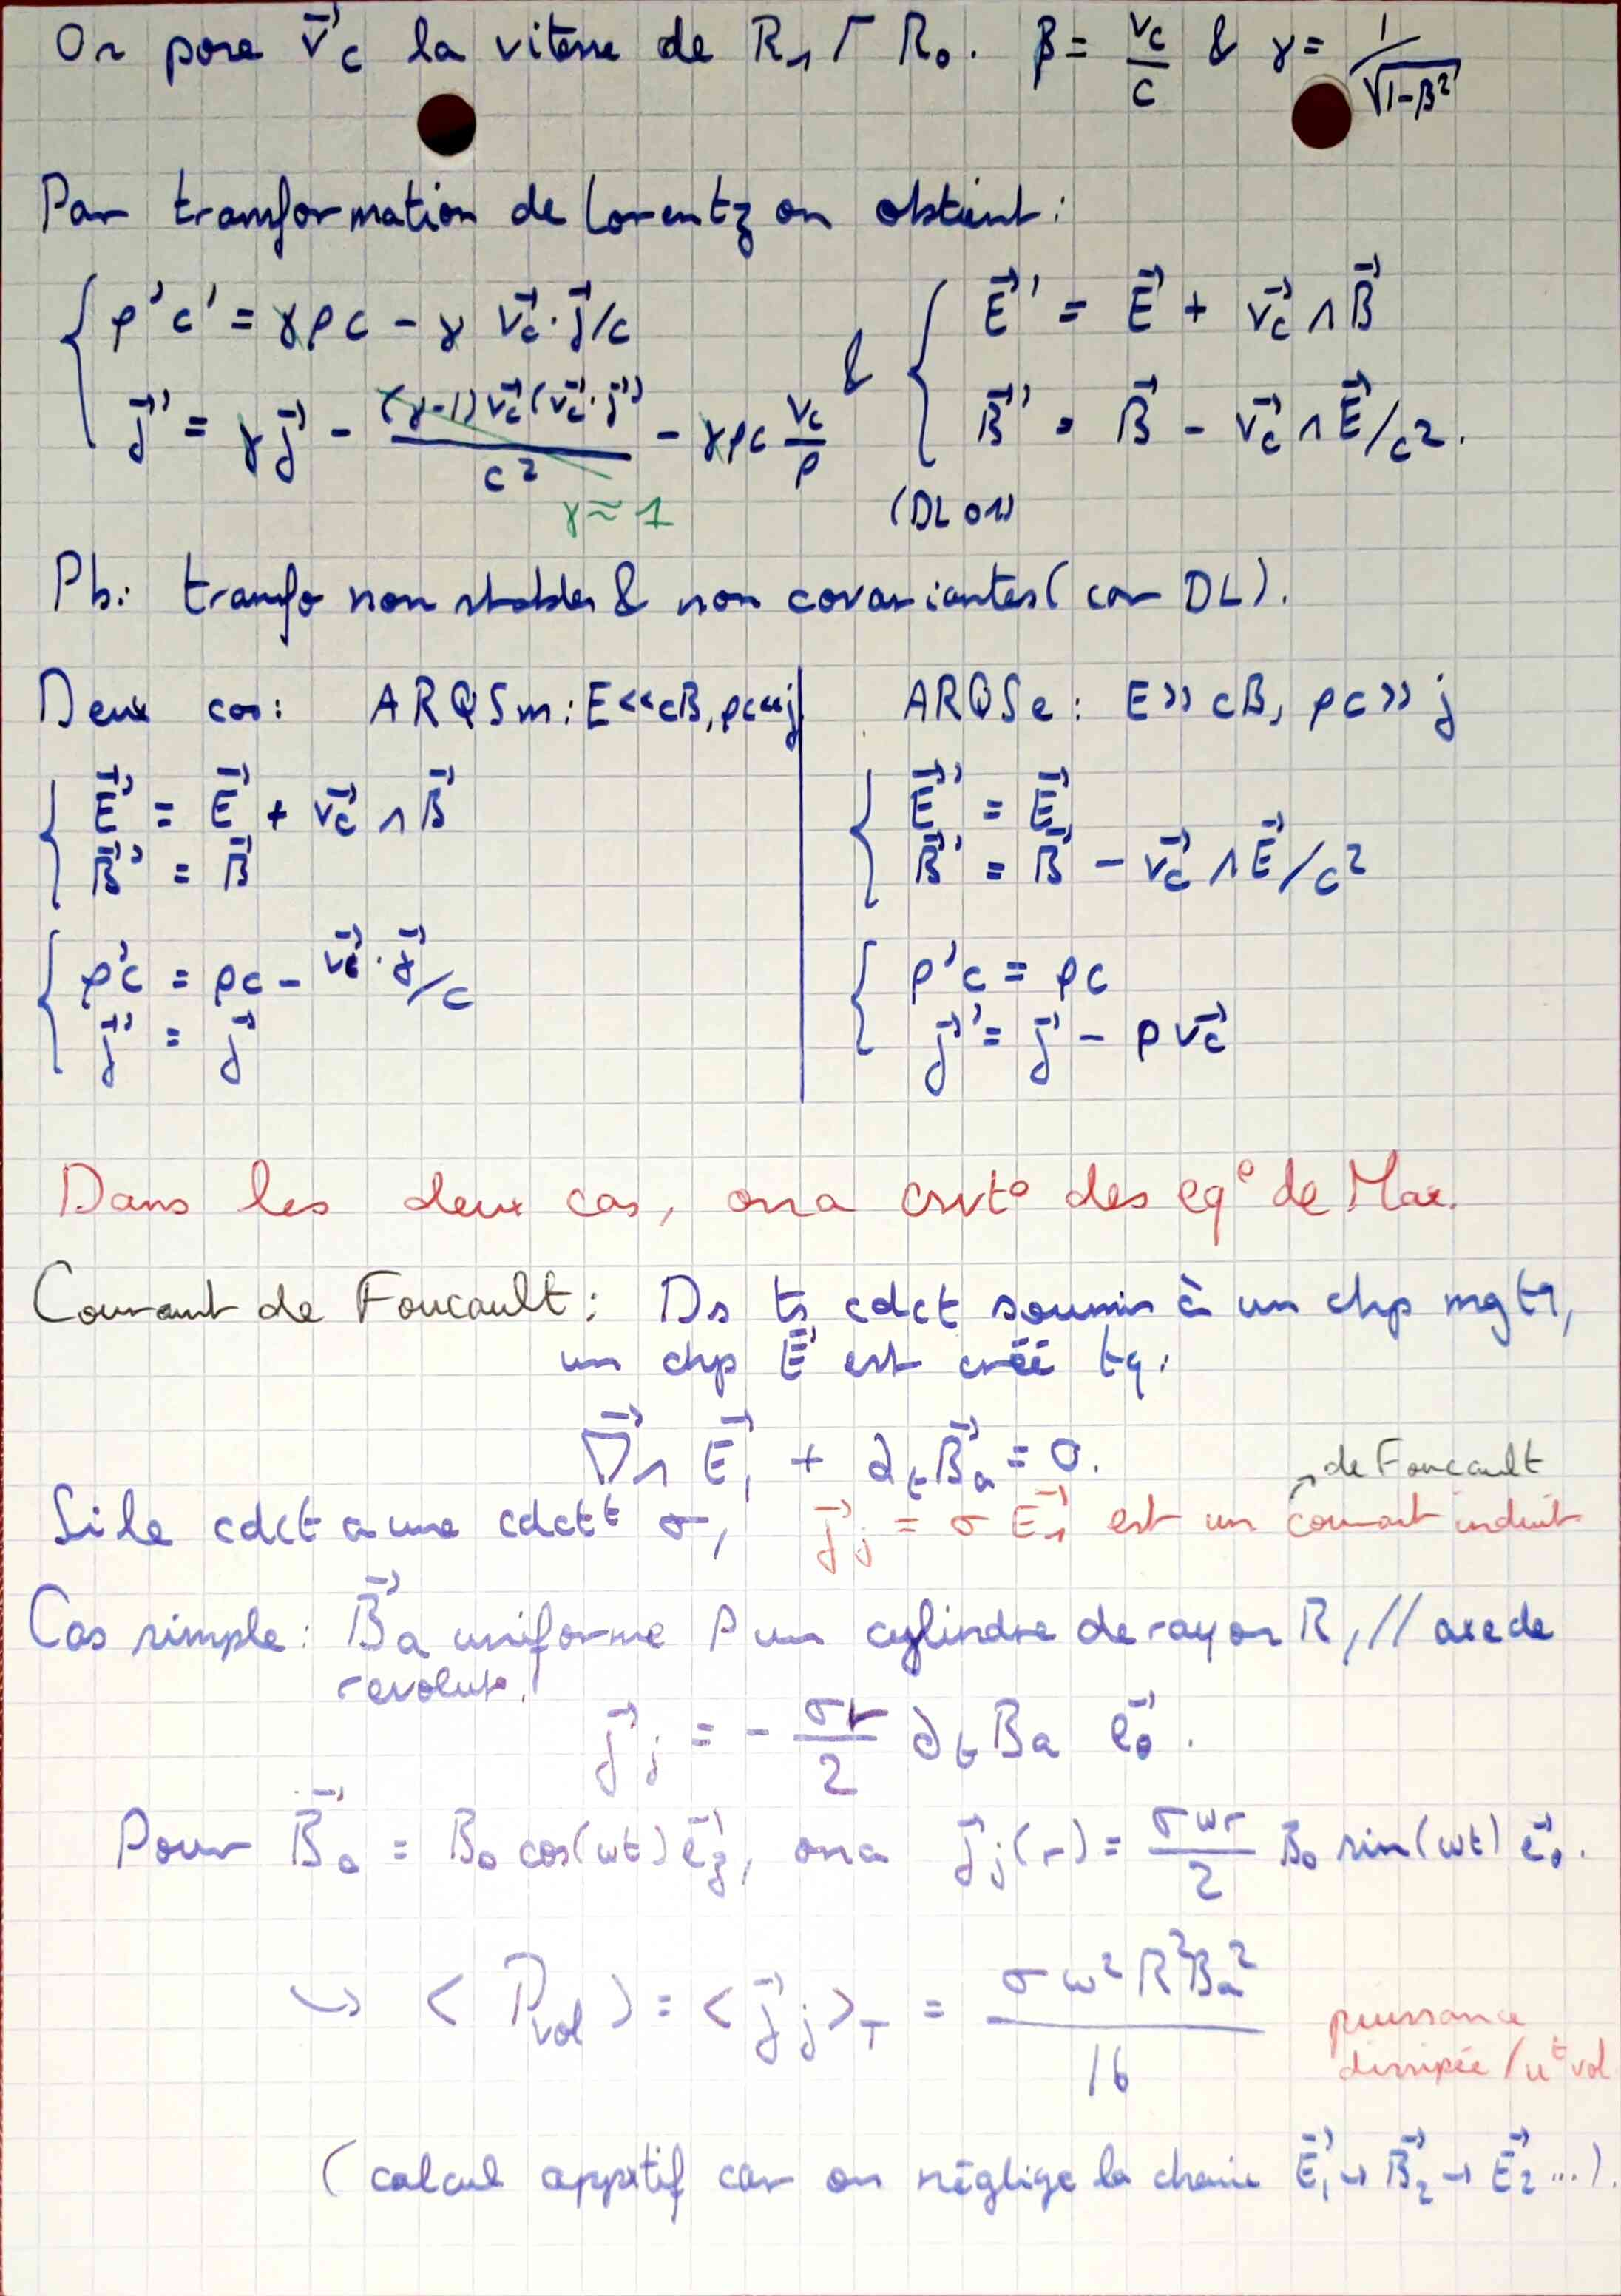 On pose v⃗c la vitesse de R₁ / R₀. β = vc/c & γ = 1/√(1-β²)
Par transformation de Lorentz on obtient :
{ ρ'c' = γρc - γ v⃗c·j⃗/c & { E⃗' = E⃗ + v⃗c ∧ B⃗
j⃗' = γj⃗ - (γ-1)v⃗c(v⃗c·j⃗)/c² - γρc vc/ρ B⃗' = B⃗ - v⃗c ∧ E⃗/c².
γ ≈ 1 (DL o1)
Pb: transfo non stables & non covariantes (car DL).
Deux cas: ARQSm : E<<cB, ρc<<j | ARQSe : E>>cB, ρc>>j
{ E⃗' = E⃗ + v⃗c ∧ B⃗ | { E⃗' = E⃗
B⃗' = B⃗ | B⃗' = B⃗ - v⃗c ∧ E⃗/c²
{ ρ'c = ρc - v⃗c·j⃗/c | { ρ'c = ρc
j⃗' = j⃗ | j⃗' = j⃗ - ρv⃗c
Dans les deux cas, on a crvt° des eq° de Max.
Courant de Foucault : Ds ts cdct soumis à un chp mgtq,
un chp E⃗ est créé tq:
∇⃗ ∧ E⃗₁ + ∂tB⃗a = 0.
de Foucault
Si le cdct a une cdctt σ, j⃗j = σE⃗₁ est un courant induit
Cas simple : B⃗a uniforme p un cylindre de rayon R, // axe de
revolut°.
j⃗j = - σr/2 ∂tBa e⃗θ.
Pour B⃗a = B₀ cos(ωt) e⃗z, on a j⃗j(r) = σωr/2 B₀ sin(ωt) e⃗θ.
↪ <Pvol> = <j⃗j>T = σω²R²Ba²/16 puissance
dissipée/ut vol
(calcul appxtif car on néglige la chaine E⃗₁ → B⃗₂ → E⃗₂ ...).